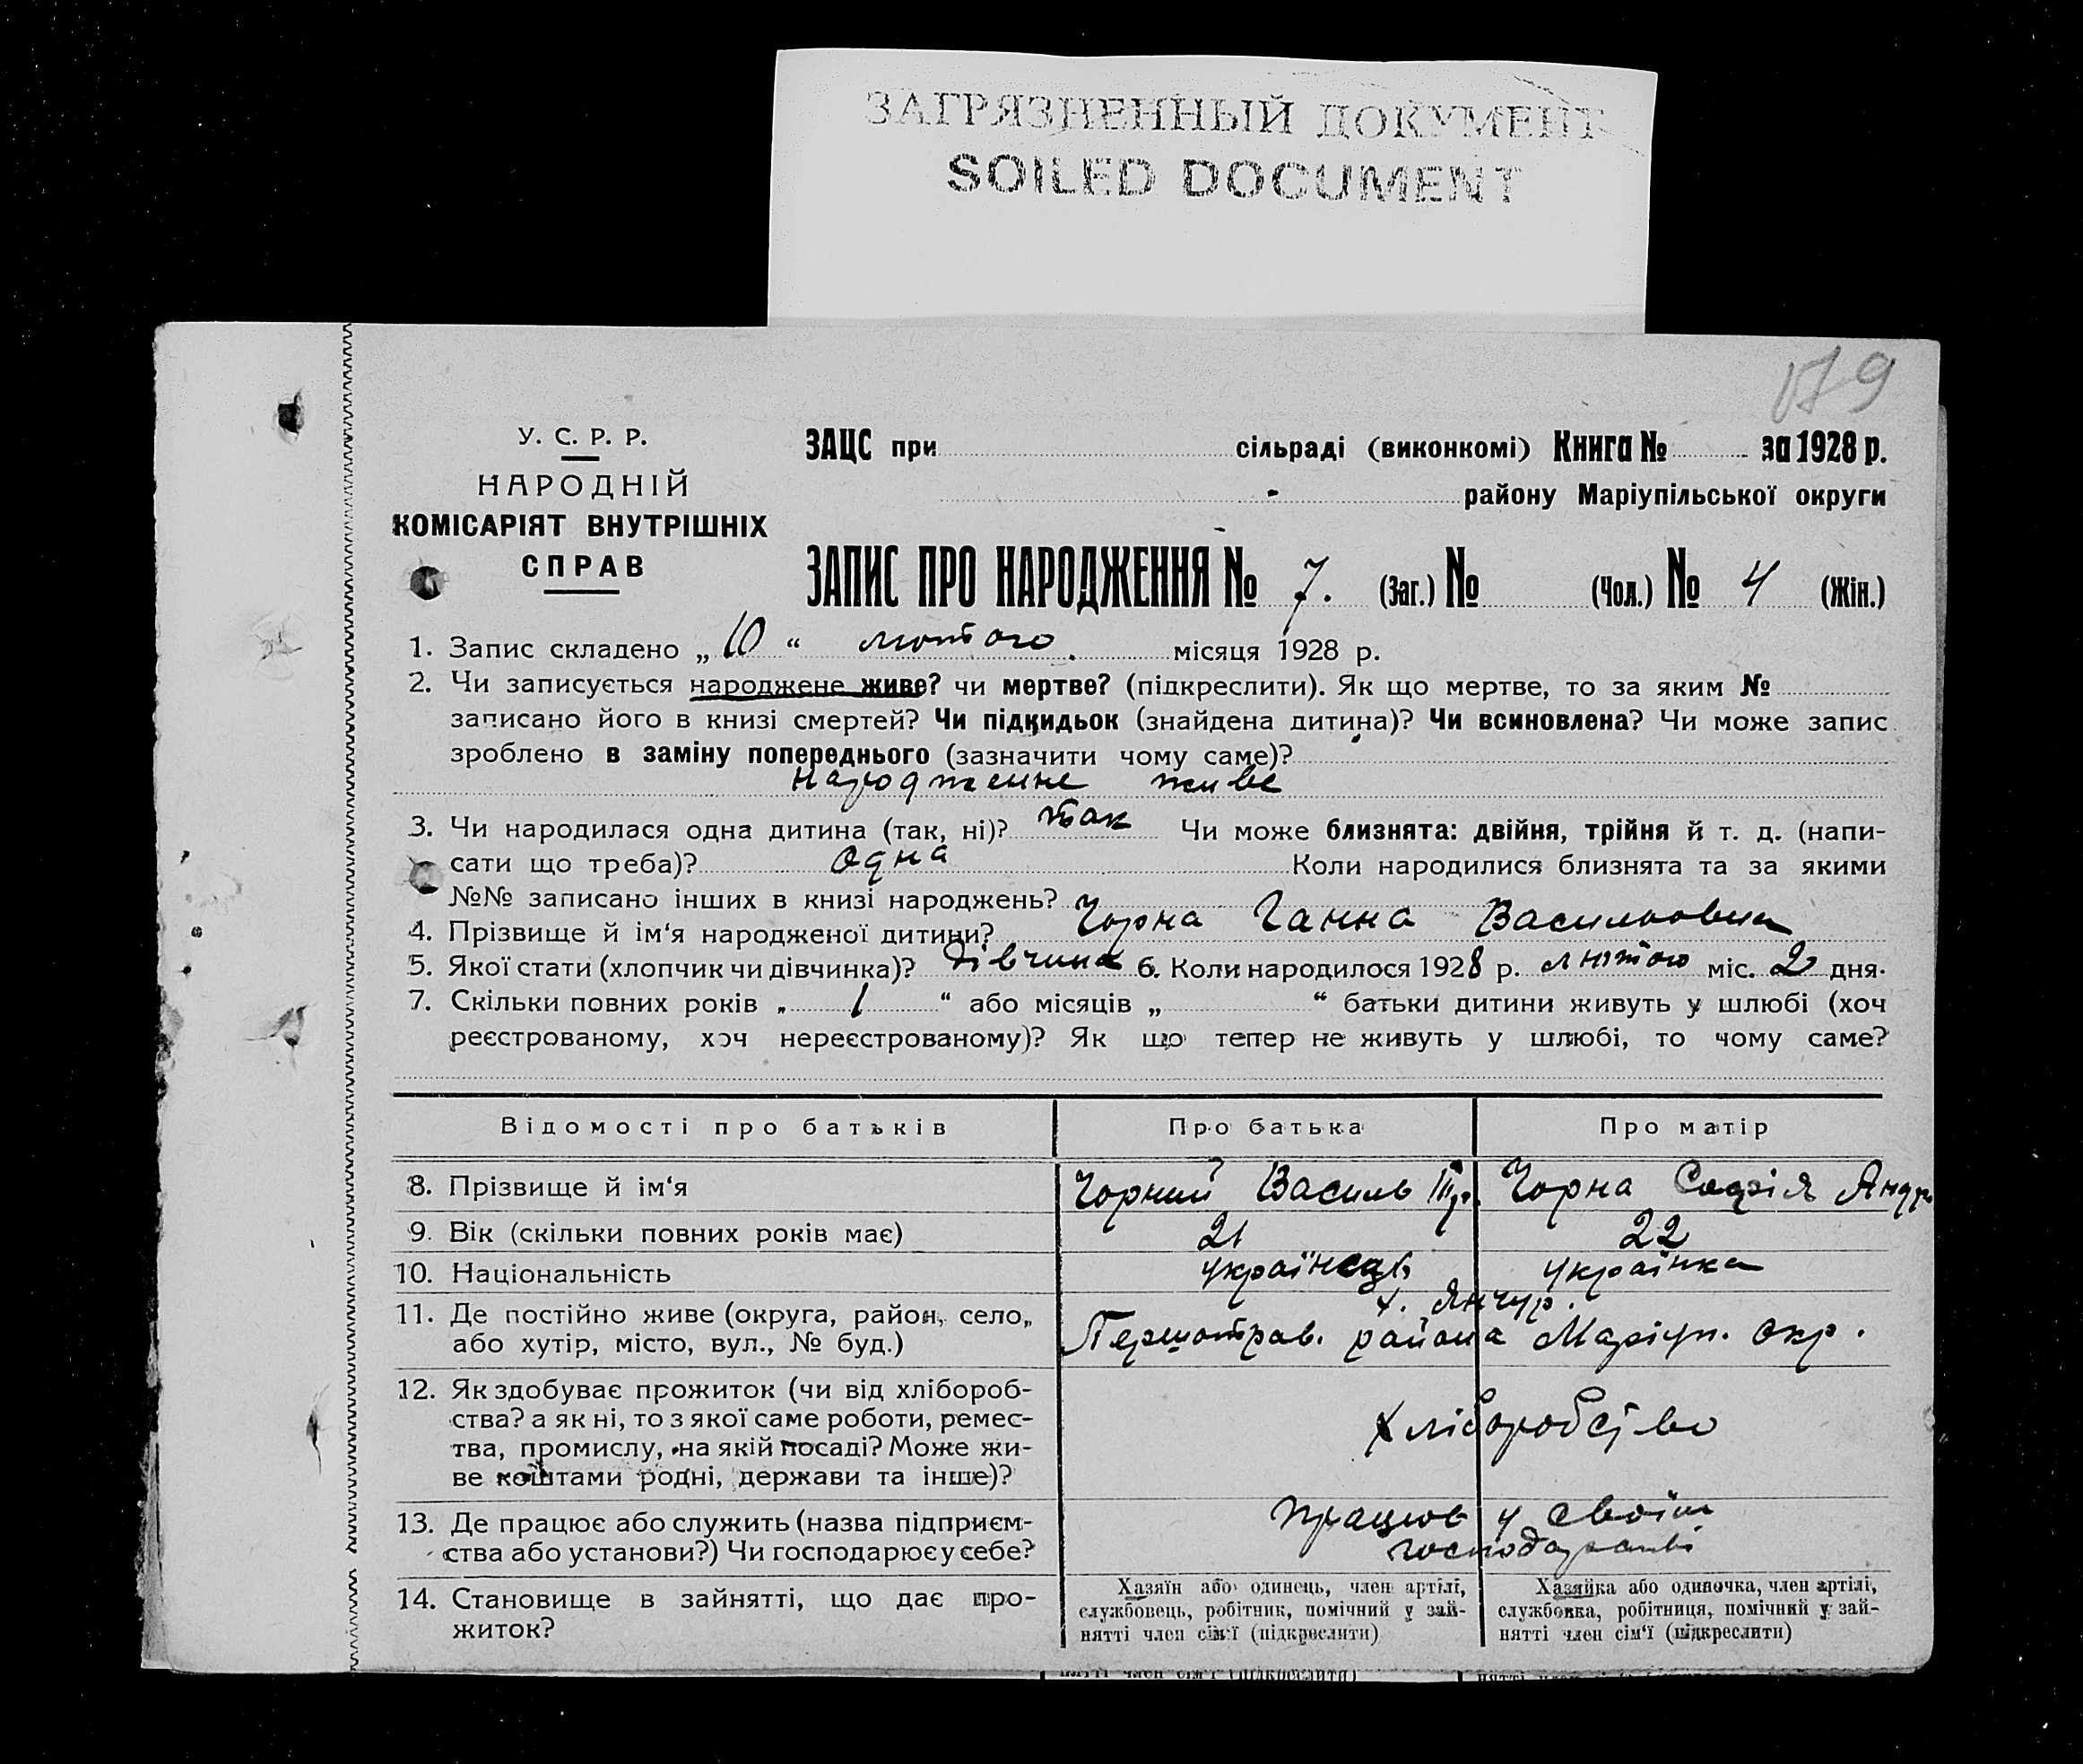 ЗАГРЯЗНЕННЫЙ ДОКУМЕНТ
SOILED DOCUMENT
У. С. Р. Р.
НАРОДНІЙ
КОМІСАРІЯТ ВНУТРІШНІХ
СПРАВ
ЗАЦС при сільраді (виконкомі) Книга № за 1928 р.
району Маріупільської округи
ЗАПИС ПРО НАРОДЖЕННЯ № 7. (Заг.) № (Чол.) № 4 (Жін.)
1. Запис складено „ 10 “ лютого місяця 1928 р.
2. Чи записується народжене живе? чи мертве? (підкреслити). Як що мертве, то за яким №
записано його в книзі смертей? Чи підкидьок (знайдена дитина)? Чи всиновлена? Чи може запис
зроблено в заміну попереднього (зазначити чому саме)?
народженне живе
3. Чи народилася одна дитина (так, ні)? так Чи може близнята: двійня, трійня й т. д. (напи-
сати що треба)? одна Коли народилися близнята та за якими
№№ записано інших в книзі народжень?
4. Прізвище й ім‘я народженої дитини? Чорна Ганна Васильовна
5. Якої стати (хлопчик чи дівчинка)? Дівчина 6. Коли народилося 1928 р. лютого міс. 2 дня.
7. Скільки повних років „ 1 “ або місяців „ “ батьки дитини живуть у шлюбі (хоч
реєстрованому, хоч нереєстрованому)? Як що тепер не живуть у шлюбі, то чому саме?
Відомості про батьків Про батька Про матір
8. Прізвище й ім‘я Чорний Василь Чорна Софія Яндр
9. Вік (скільки повних років має) 21 22
10. Національність українець українка
11. Де постійно живе (округа, район, село, х. Янчур.
або хутір, місто, вул., № буд.) Першотрав. района Маріуп. окр.
12. Як здобуває прожиток (чи від хлібороб-
ства? а як ні, то з якої саме роботи, ремес- Хліборобство
тва, промислу, на якій посаді? Може жи-
ве коштами родні, держави та інше)?
13. Де працює або служить (назва підприєм- працює у своїм
ства або установи?) Чи господарює у себе? господарстві
14. Становище в зайнятті, що дає про-
житок?
Хазяїн або одинець, член артілі,
службовець, робітник, помічний у зай-
нятті член сім‘ї (підкреслити)
Хазяйка або одиночка, член артілі,
службовка, робітниця, помічний у зай-
нятті член сім‘ї (підкреслити)